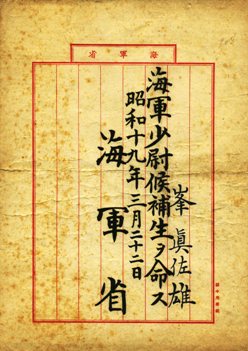 海軍省
峯眞佐雄
海軍少尉候補生ヲ命ス
昭和十九年三月二十二日
海軍省